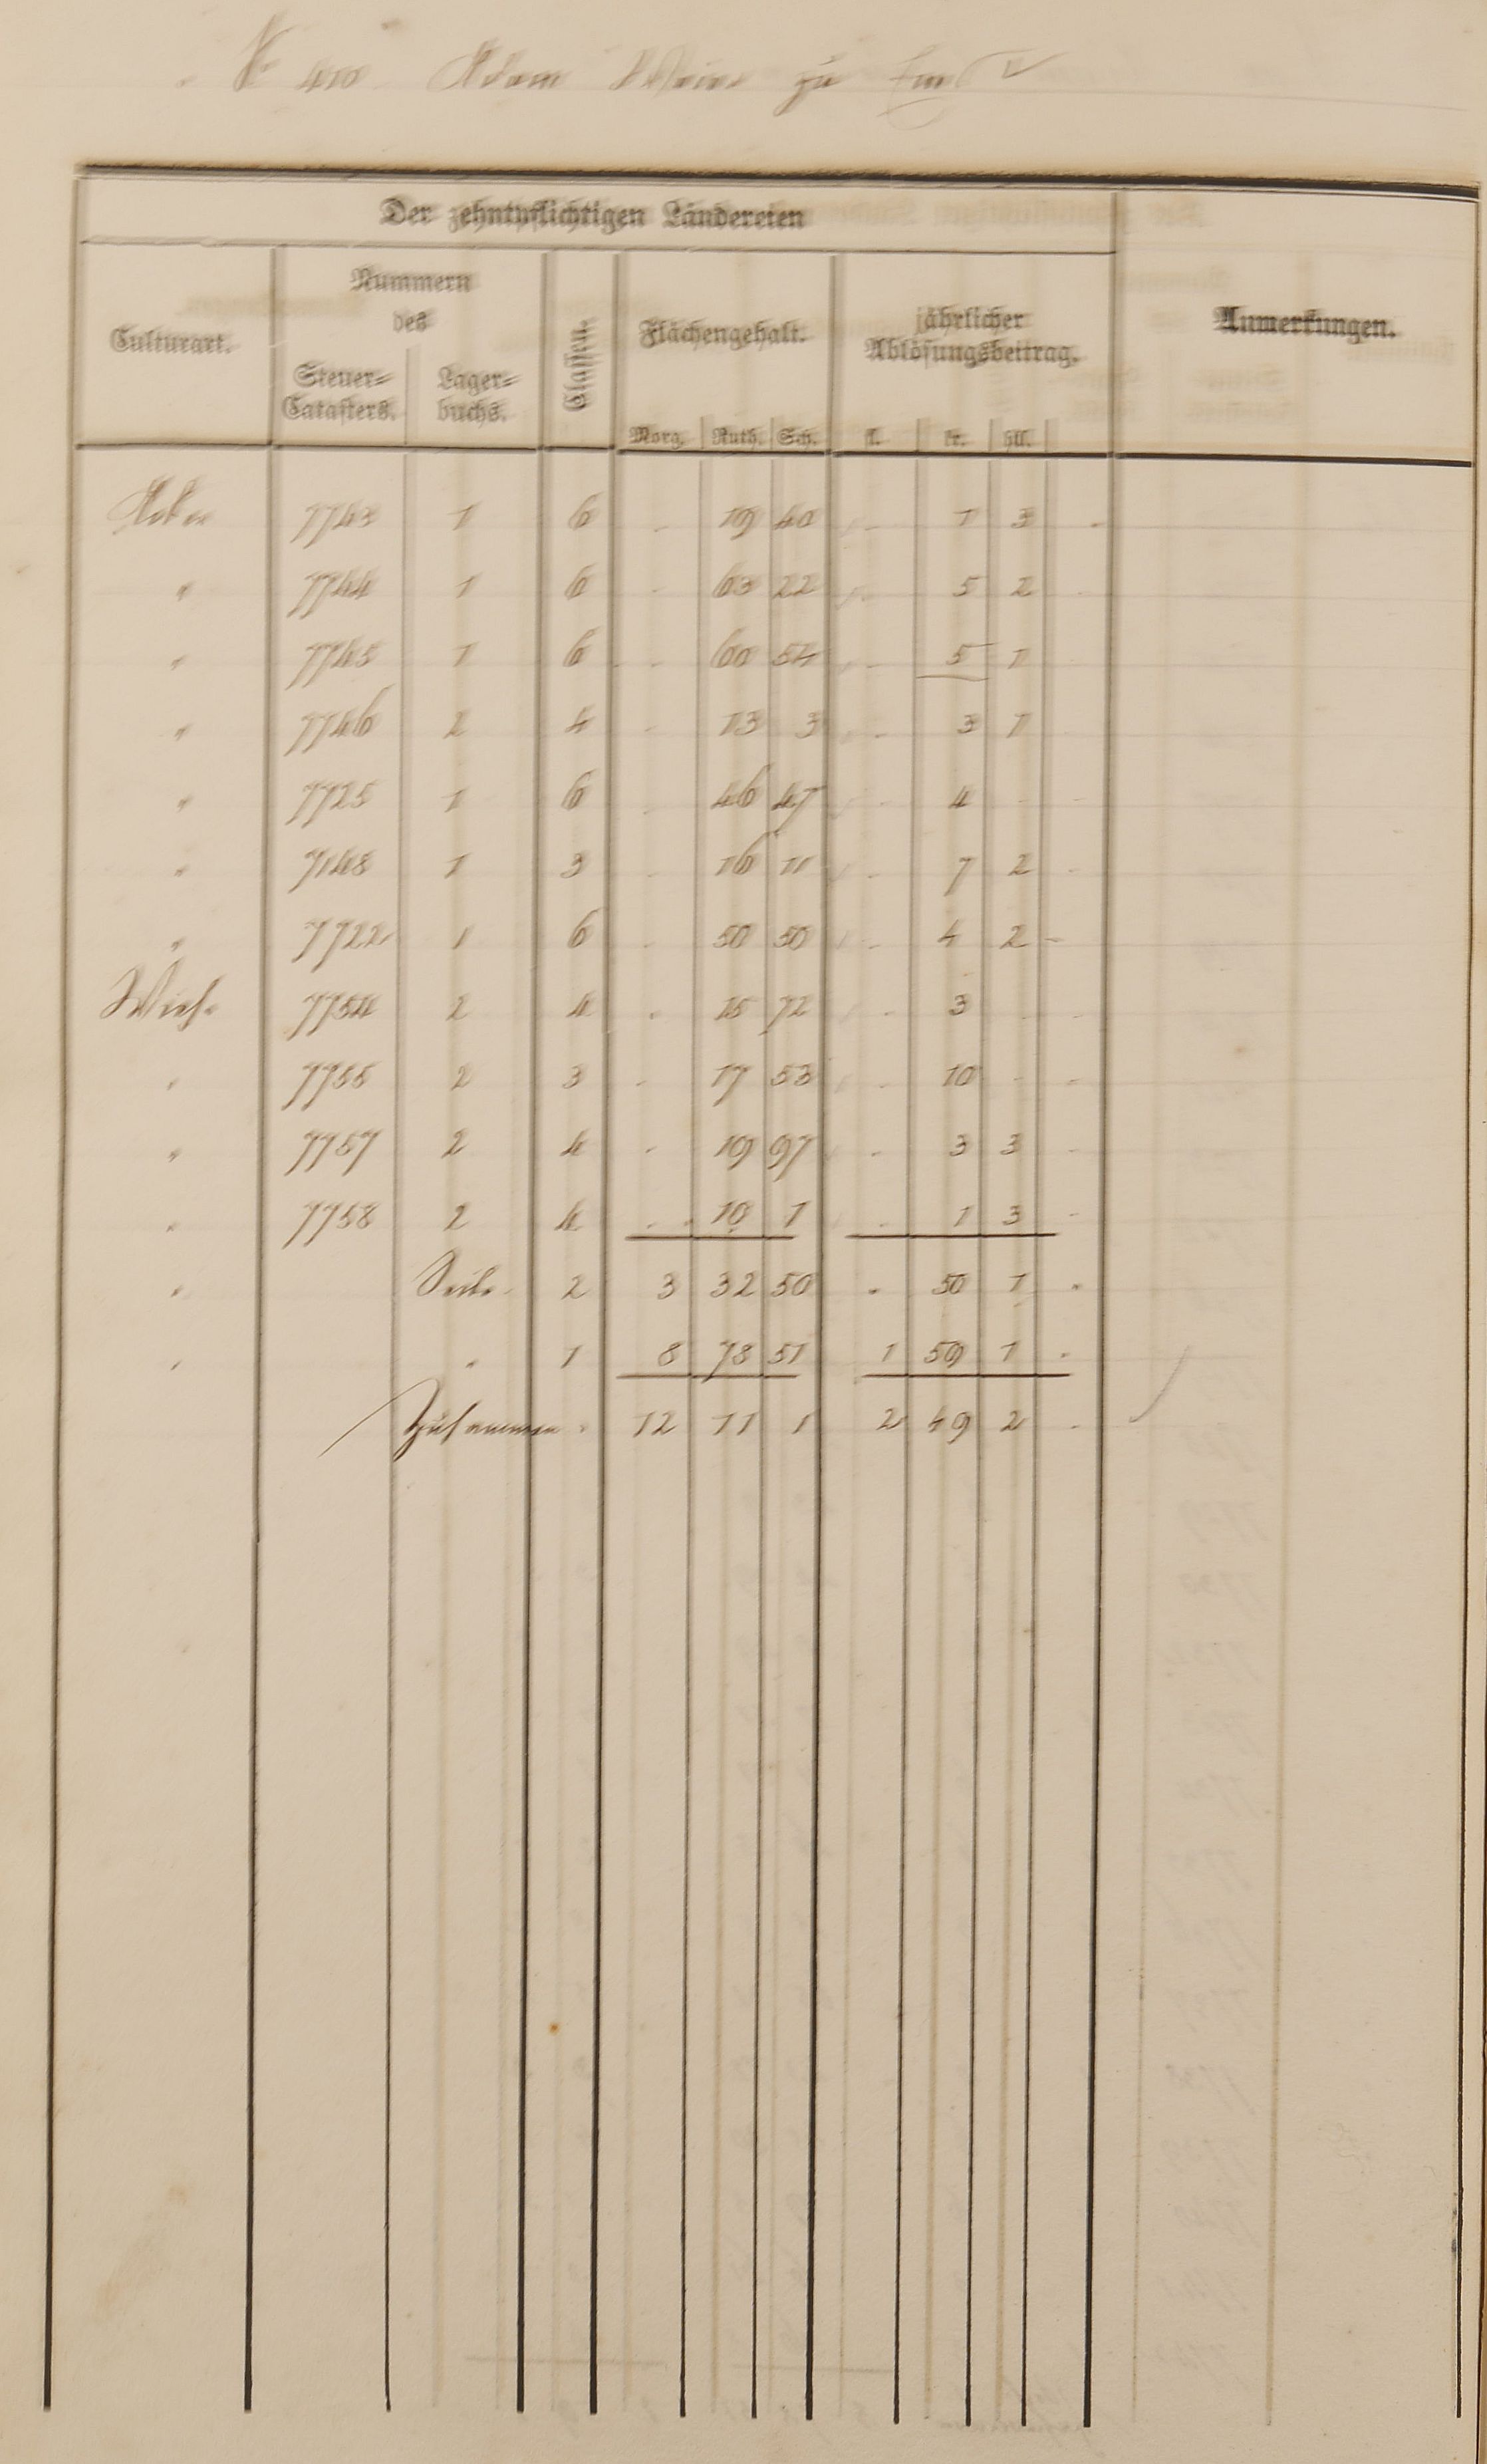 Adam zu Ems
Der zehntpflichtigen Ländereien
Culturart.
Nummern
des
Steuer=
Catasters.
Lager=
buchs.
Classen.
Flächengehalt.
Morg. Ruth. Sch.
jährlicher
Ablösungsbeitrag.
fl. kr. hll.
Anmerkungen.
Acker 7743 1 6 - 19 40 - 1 3 -
" 7744 1 6 - 63 22 - 5 2
" 7745 1 6 - 60 54 - 5 1
" 7746 2 4 - 13 3 - 3 1
" 7725 1 6 - 46 47 - 4 - -
" 1 3 - 16 11 - 7 2 -
" 7722 1 6 - 50 50 - 4 2 -
Wiese 7754 2 4 - 15 72 - 3 - -
" 7755 2 3 - 17 53 - 10 - -
" 7757 2 4 - 19 97 - 3 3 -
" 7758 2 4 - 10 1 - 1 3 -
" Seite 2 3 32 50 - 50 1 -
" " 1 8 78 51 1 59 1 -
Zusammen 12 11 1 2 49 2 -